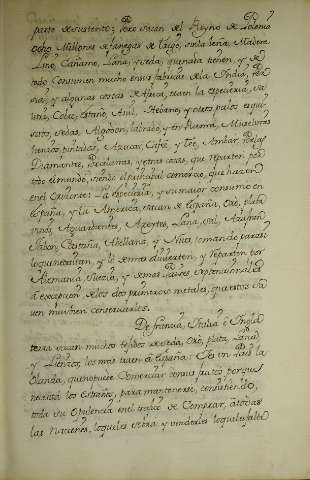 7
parte de sustento; Pero sacan del Reyno de Polonia
ocho Millones de fanegas de trigo, mucha leña, Madera
Lino, Cañamo, Lana, y seda, quanta tienen, y de
todo consumen mucho en sus fabricas de la India, Per
sia, y algunas costas de Africa, traen la especieria, Sa
litre, Cobre, Estaño, Añil, Hebano, y otros palos esqui
sitos, sedas, Algodon, labrado, y en Rama, Muselinas
lienzos pintados, Azucar, Café, y Tee, Ambar, Perlas
Diamantes, Porcelanas, y otras cosas, que reparten por
todo el mundo, siendo el principal comercio, que hacen
en el Oriente: La especieria, y su maior consumo en
España, y la America, sacan de España, Oro, plata
vinos, Aguardientes, Azeytes, Lana, sal, Azafran
Jabon, Castaña, Abellana, y Anis, tomando para si
lo que necesitan, y lo demas divierten, y reparten por
Alemania, Suecia, y demas Payses Septentrionales
a excepcion de los dos primeros metales, que estos sa
ven mui bien conservarlos.
De Francia, Italia è Ingla
terra sacan muchos texidos de seda, Oro, plata, Lana
y Lienzos, los mas traen a España: Es tan facil la
Olanda, que no puede Comerciar con sus frutos porque
necesita los Estraños, para mantenerse, consistiendo
toda su Opulencia en el trafico de Comprar, a todas
las Naciones, lo que les sobra, y venderles lo que les falta